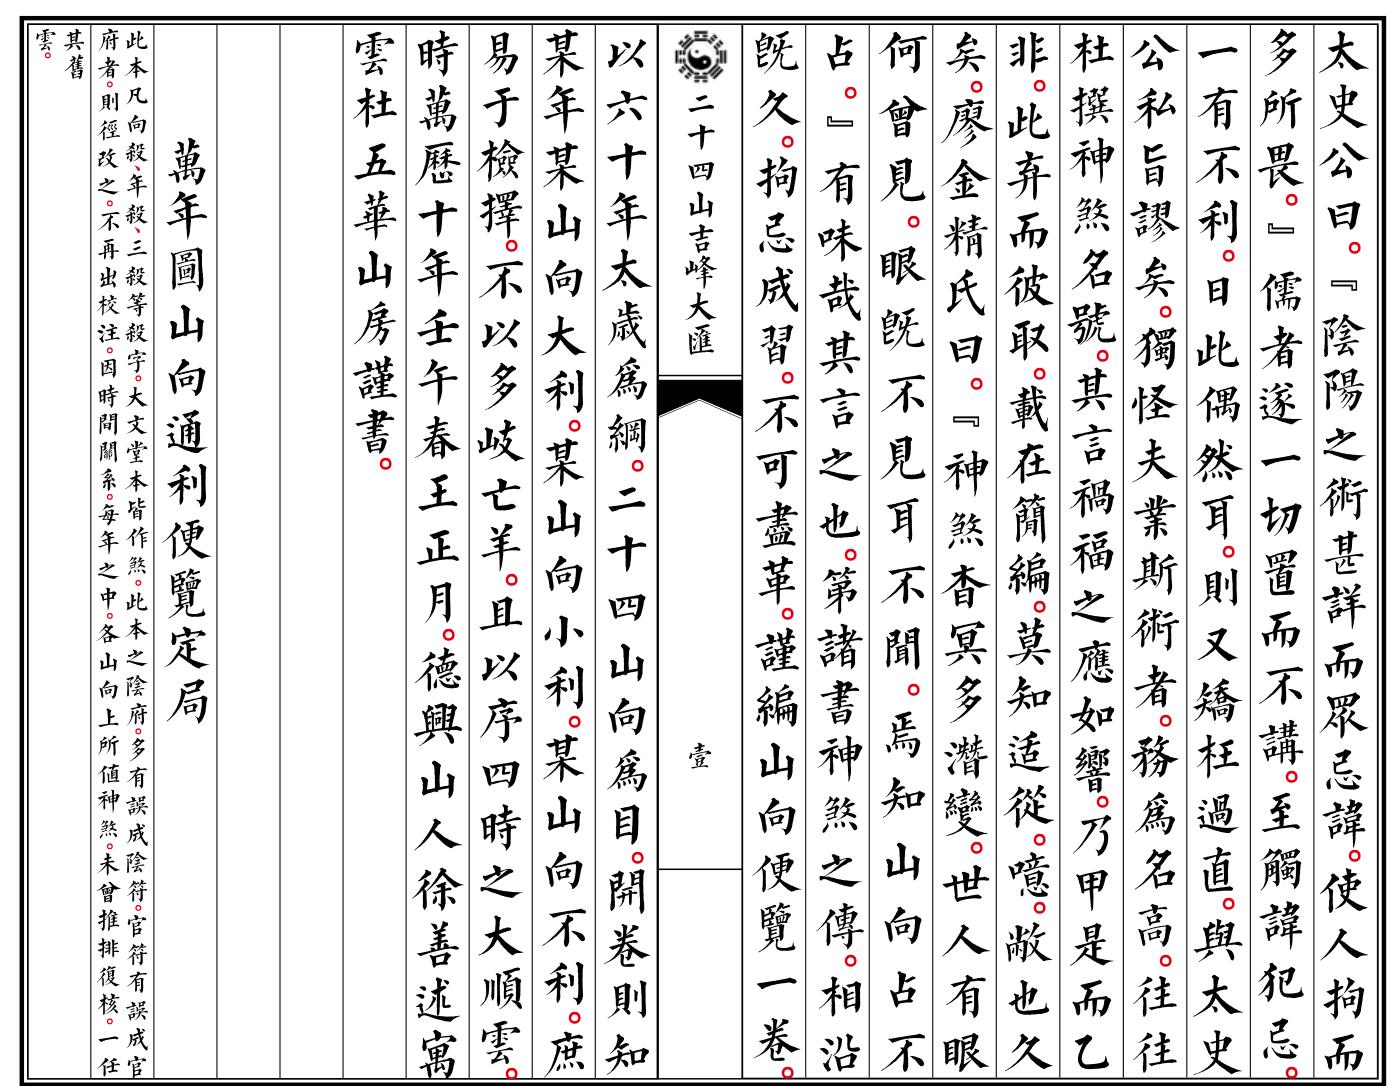 太史公曰。『陰陽之術甚詳而眾忌諱。使人拘而
多所畏。』儒者遂一切置而不講。至觸諱犯忌。
一有不利。日此偶然耳。則又矯枉過直。與太史
公私旨謬矣。獨怪夫業斯術者。務爲名高。往往
杜撰神煞名號。其言禍福之應如響。乃甲是而乙
非。此弃而彼取。載在簡編。莫知适從。噫。敝也久
矣。廖金精氏曰。『神煞杳冥多潛變。世人有眼
何曾見。眼旣不見耳不聞。焉知山向占不
占。』有味哉其言之也。第諸書神煞之傳。相沿
旣久。拘忌成習。不可盡革。謹編山向便覽一卷。
二十四山吉峰大匯
壹
以六十年太歲爲綱。二十四山向爲目。開卷則知
某年某山向大利。某山向小利。某山向不利。庶
易于檢擇。不以多岐亡羊。且以序四時之大順雲。
時萬曆十年壬午春王正月。德興山人徐善述寓
雲杜五華山房謹書。
萬年圖山向通利便覽定局
此本凡向殺、年殺、三殺等殺字。大文堂本皆作煞。此本之陰府。多有誤成陰符。官符有誤成官
府者。則徑改之。不再出校注。因時間關系。每年之中。各山向上所值神煞。未曾推排復核。一任
其舊
雲。